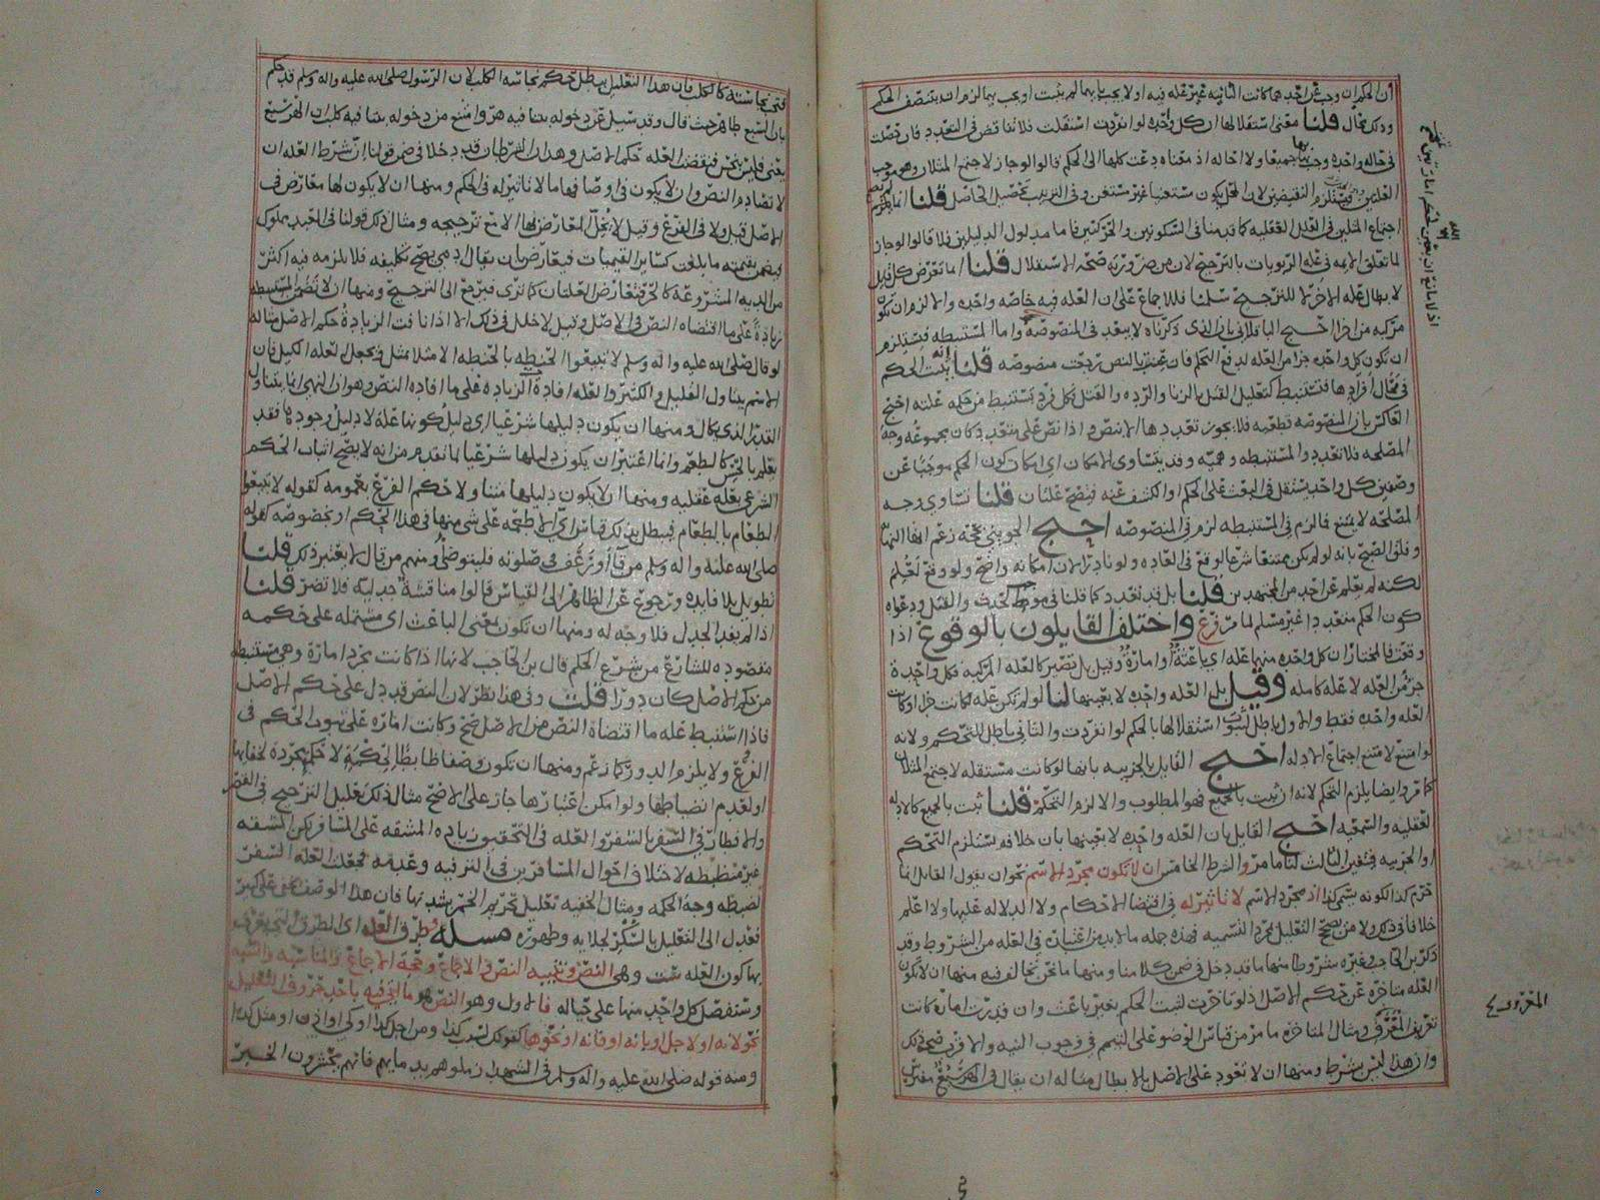 أن الحكم ان وجب عن احدهما كانت الثانيه غير عله فيه او لا يجب بهما لم يثبت او يجب بهما لزم ان يتنصف الحكم
وذلك محال قلنا معنى استقلالها ان كل واحده لو انفردت استقلت فلا تناقض في التعدد فان فرضت
في حاله واحده وجب بها جميعا ولا احاله اذ معناه دعت كلها الى الحكم قالوا لو جاز لاجتمع المثلان وهو موجب
العلتين فيستلزم النقيضين لان المحل يكون مستغنيا غير مستغن وفي الترتيب تحصيل الحاصل قلنا انما يلزم
اجتماع المثلين في العلل العقليه كما قدمنا في السكونين والحركتين فاما مدلول الدليلين فلا قالوا لو جاز
لما تعلق الايمه في عله الربويات بالترجيح لان من ضرورته صحه الاستقلال قلنا انما تعرض كل قايل
لابطال عله الاخر لا للترجيح سلمنا فللاجماع على ان العله فيه خاصه واحده والا لزم ان تكون
مركبه من اجزا احتج الباقلاني بان الذي ذكرناه لا يبعد في المنصوصه واما المستنبطه فيستلزم
ان تكون كل واحده جزا من العله لدفع التحكم فان عينت بالنص رجعت منصوصه قلنا انه يثبت الحكم
في محال افرادها فتستنبط كتعليل القتل بالزنا والرده والقتل بكل فرد يستنبط من حكمه علته احتج
العاكس بان المنصوصه قطعيه فلا يجوز تعددها الا بنص واذا نص على متعدد كان مجموعه وجه
المصلحه فلا تعدد والمستنبطه وهميه وقد يتساوى الامكان اي امكان كون الحكم موجبا عن
وصفين كل واحد يستقل في البعث على الحكم او الكشف عنه فيصح علتان قلنا تساوى وجه
المصلحه لا يمتنع فالزم في المستنبطه لزم في المنصوصه احتج الجويني بحجه زعم انها النهايه
وفلق الصبح بانه لو لم يكن ممتنعا شرعا لوقع في العاده ولو نادرا لان امكانه واضح ولو وقع لعلم
لكنه لم يعلم عن احد من المجتهدين قلنا بل قد تعدد كما قلنا في موجب الحدث والقتل ودعواه
كون الحكم متعددا غير مسلم لما مر فرع واختلف القايلون بالوقوع اذا
وقعت فالمختار ان كل واحده منها عله اي باعثة او امارة وقيل بل تصير كالعله المركبه فكل واحدة
جزء من العله لا عله كامله وقيل بل العله واحده لا بعينها لنا لو لم تكن عله لكانت جزا او كانت
العله واحده فقط والاول باطل لثبوت استقلالها بالحكم لو انفردت والثاني باطل للتحكم ولانه
لو امتنع لامتنع اجتماع الادله احتج القايل بالجزييه بانها لو كانت مستقله لاجتمع المثلان
كما مر وايضا يلزم التحكم لانه ان ثبت بالجميع فهو المطلوب والا لزم التحكم قلنا ثبت بالجميع كالادله
العقليه والسمعيه احتج القايل بان العله واحده لا بعينها بان خلافه يستلزم التحكم
او الجزييه فتعين الثالث لنا ما مر والشرط الخامس ان لا تكون مجرد الاسم نحو ان يقول القايل انما
حرم كذا لكونه يسمى كذا اذ مجرد الاسم لا تاثير له في اقتضا الاحكام ولا الدلاله عليها ولا اعلم
خلافا في ذلك ولا من يصحح التعليل بمجرد التسميه فهذه جمله ما لا بد من اعتباره في العله من الشروط وقد
ذكر بن الحاجب وغيره شروطا منها ما قد دخل في ضمن كلامنا ومنها ما نحن نخالف فيه منها ان لا تكون
العله متاخره عن حكم الاصل اذ لو تاخرت لثبت الحكم بغير باعث وان قدرت اماره كانت
تعريف المعرف ومثال المتاخره ما مر من قياس الوضو على التيمم في وجوب النيه والاقرب صحه ذلك
وان هذا ليس بشرط ومنها ان لا تعود على الاصل بالابطال مثاله ان يقال في الهر سبع مفترس
المعروف
فتكون نجاسته كالكلب فان هذا التعليل يبطل حكم نجاسه الكلب لان الرسول صلى الله عليه واله وسلم قد حكم
بان السبع طاهر حيث قال وقد سيل عن دخوله بيتا فيه هر وامتنع من دخوله بيتا فيه كلب ان الهر سبع
يعني فليس بنجس فينقض العله حكم الاصل وهذان الشرطان قد دخلا في ضمن قولنا ان شرط العله ان
لا تصادم النص وان لا يكون في اوصافها ما لا تاثير له في الحكم ومنها ان لا يكون لها معارض في
الاصل قيل ولا في الفرع وقيل لا يخل المعارض لها الا مع ترجيحه ومثال ذلك قولنا في العبد مملوك
فيضمن بقيمته ما بلغت كساير القيميات فيعارض بان يقال ادمي يصح تكليفه فلا يلزمه فيه اكثر
من الديه المشروعه كالحر فتعارض العلتان كما ترى فيرجع الى الترجيح ومنها ان لا تتضمن المستنبطه
زيادة على ما اقتضاه النص في الاصل وقيل لا خلل في ذلك الا اذا نافت الزيادة حكم الاصل مثاله
لو قال صلى الله عليه واله وسلم لا تبيعوا الحنطه بالحنطه الا مثلا بمثل فتجعل العله الكيل فان
الاسم يتناول القليل والكثير والعله افادة الزياده على ما افاده النص وهو ان النهي انما يتناول
القدر الذي يكال ومنها ان يكون دليلها شرعيا اي دليل كونها عله لا دليل وجودها فقد
يعلم بالحس كالطعم وانما اعتبر ان يكون دليلها شرعيا لما تقدم من انه لا يصح اثبات الحكم
الشرعي بعله عقليه ومنها ان لا يكون دليلها متناولا حكم الفرع بعمومه كقوله لا تبيعوا
الطعام بالطعام فيبطل بذلك قياس اي الاطعمه على شي منها في هذا الحكم او بخصوصه كقوله
صلى الله عليه واله وسلم من قا او رعف في صلوته فليتوضا ومنهم من قال لا يعتبر ذلك قلنا
تطويل بلا فايده ورجوع عن الظاهر الى القياس قالوا مناقشة جدليه فلا تضر قلنا
اذا لم يفد الجدل فلا وجه له ومنها ان تكون بمعنى الباعث اي مشتمله على حكمه
مقصوده للشارع من شرع الحكم قال بن الحاجب لانها اذا كانت مجرد امارة وهي مستنبطه
من حكم الاصل كان دورا قلت وفي هذا نظر لان النص قد دل على حكم الاصل
فاذا استنبط عله ما اقتضاه النص من الاصل صح وكانت اماره على ثبوت الحكم في
الفرع ولا يلزم الدور كما زعم ومنها ان تكون وصفا ظابطا لحكمة لا حكمة مجرده لخفايها
او لعدم انضباطها ولو امكن اعتبارها جاز على الاصح مثال ذلك تعليل الترخيص في القصر
والافطار في السفر بالسفر والعله في التحقيق زياده المشقه على المسافر لكن المشقه
غير منظبطه لاختلاف احوال المسافرين في الترفيه وعدمه فجعلت العله السفر
لضبطه وجه الحكمه ومثال الخفيه تعليل تحريم الخمر بشدتها فان هذا الوصف يخفى على كثير
فعدل الى التعليل بالسكر لجلايه وظهوره مسله وطرق العله اي الطرق التي يعرف
بها كون العله ست وهي النص وتنبيه النص والاجماع وحجة الاجماع والمناسبه والشبه
وسنفصل كل واحد منها على حياله فالاول وهو النص هو ما اتي فيه باحد حروف التعليل
نحو لانه او لاجل او بانه او فانه او نحوها كقولك لسبب كذا ومن اجل كذا او كي او اذن او مثل كذا
ومنه قوله صلى الله عليه واله وسلم في الشهيد زملوهم بدمايهم فانهم يحشرون الخبر